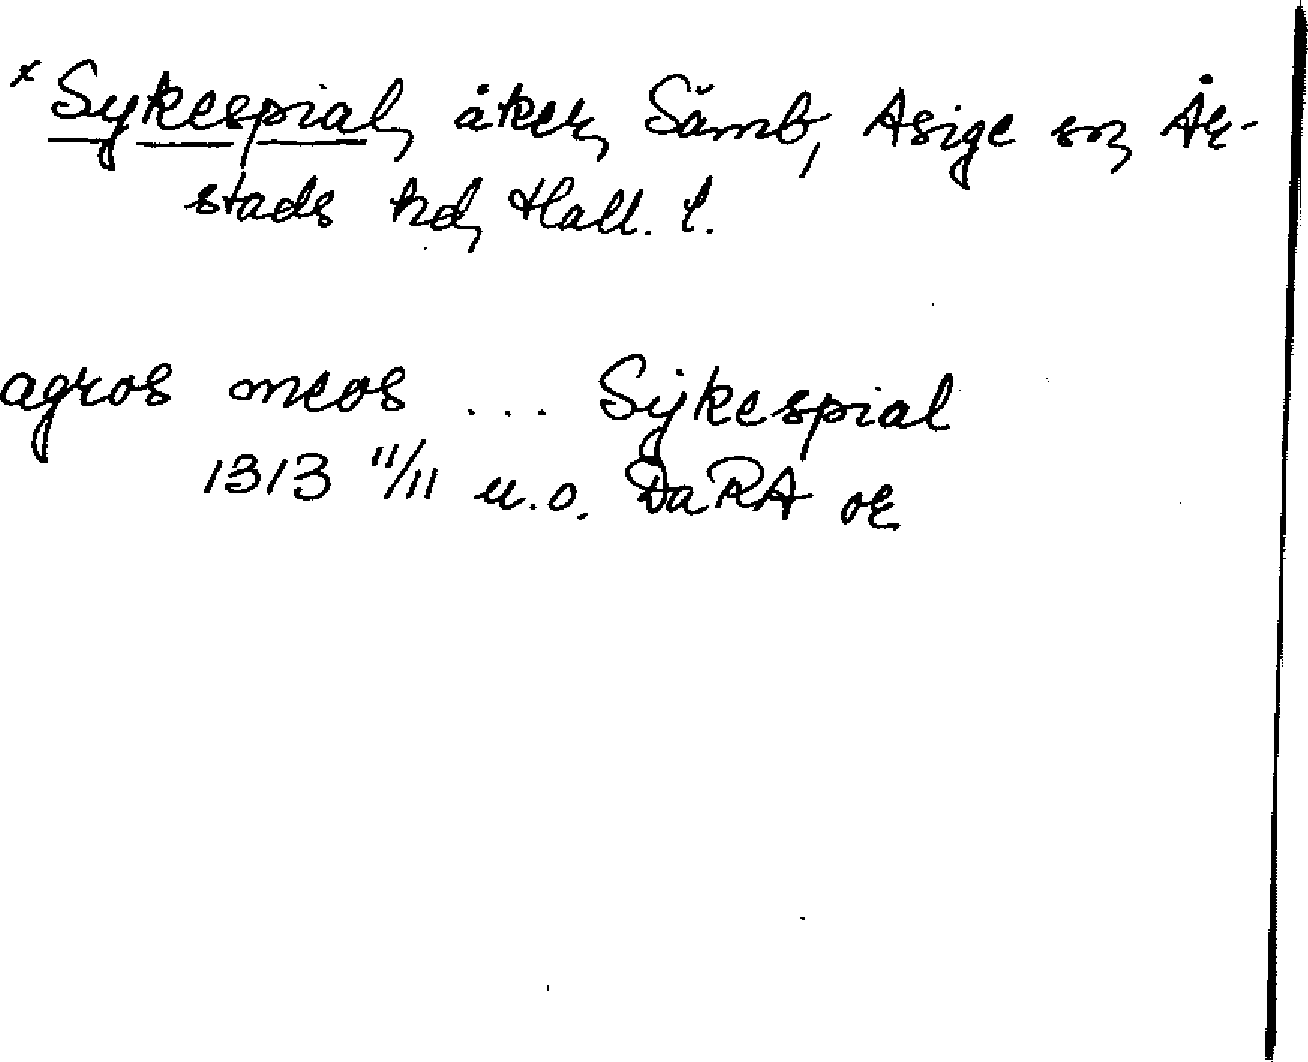 * Sykespial, åker, Sämb, Asige sn, År-
stads hd, Hall. l.
agros meos ... Sÿkespial
1313 11/11 u.o. DaRA or